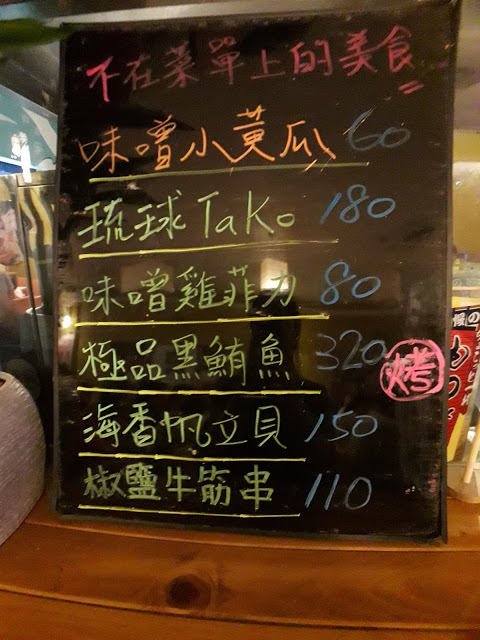 不在菜單上的美食
味噌小黃瓜 60
琉球TaKo 180
味噌雞菲力 80
極品黑鮪魚 320 烤
海香帆立貝 150
椒鹽牛筋串 110